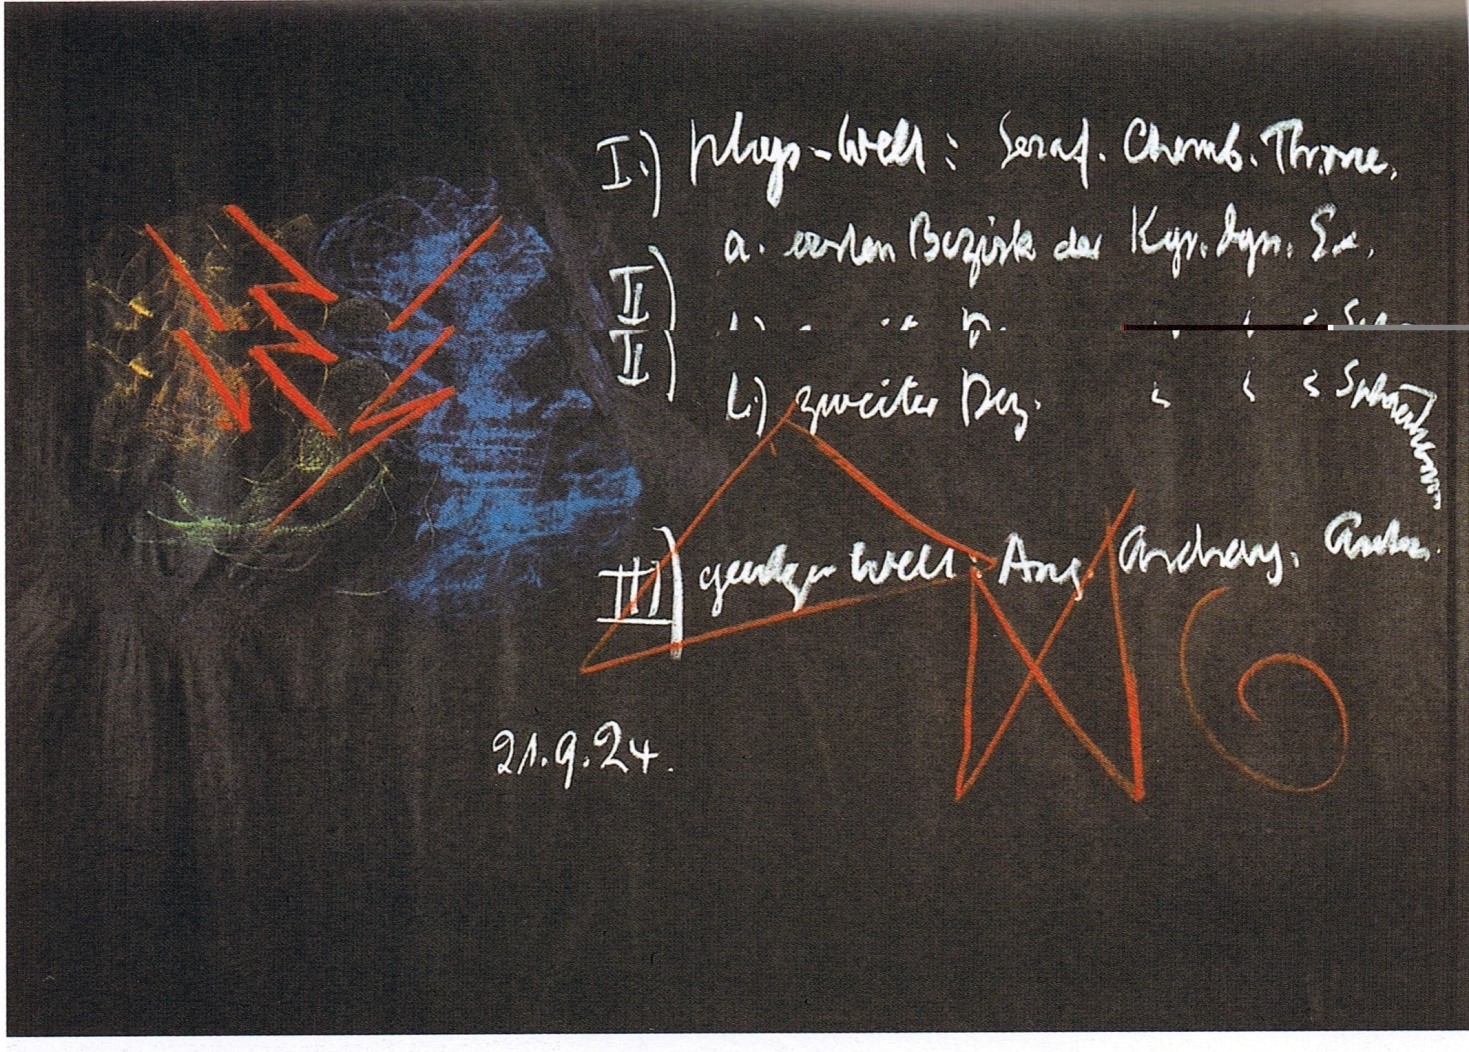 I.) phys-Welt: Seraf. Cherub. Throne.
a. ersten Bezirk der Kyr. Dyn. Ex.
II)
II)
b.) zweiter Bez. " " "
III) geistige Welt: Ang. Archang. Archai.
21.9.24.